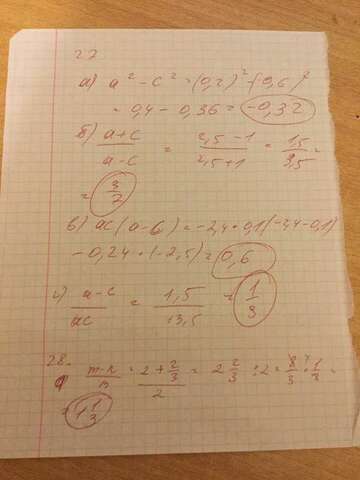 27
а) a² - c² = (0,2)² - (0,6)²
= 0,4 - 0,36 = -0,32
б) a+c / a-c = 2,5-1 / 2,5+1 = 1,5 / 3,5 =
= 3/2
в) ac(a-c) = -2,4·0,1(-2,4-0,1)
-0,24·(-2,5) = 0,6
г) a-c / ac = 1,5 / 13,5 = 1/9
28.
m-n / n = 2+2/3 / 2 = 2 2/3 : 2 = 8/3 · 1/2 =
= 1 1/3